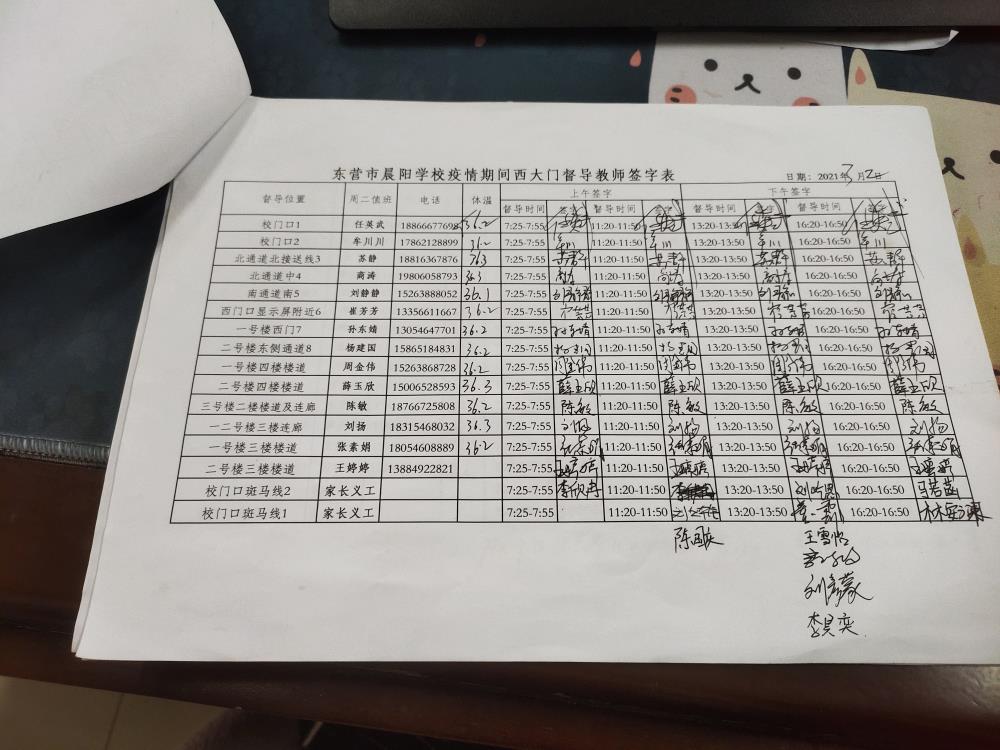 东营市晨阳学校疫情期间西大门督导教师签字表
日期：2021年3月2日
督导位置 周二值班 电话 体温 上午签字 下午签字
督导时间 签字 督导时间 签字 督导时间 签字 督导时间 签字
校门口1 任英武 18866677698 36.2 7:25-7:55 11:20-11:50 13:20-13:50 16:20-16:50
校门口2 牟川川 17862128899 36.2 7:25-7:55 牟川 11:20-11:50 牟川 13:20-13:50 牟川 16:20-16:50 牟川
北通道北接送线3 苏静 18816367876 7:25-7:55 苏静 11:20-11:50 苏静 13:20-13:50 苏静 16:20-16:50 苏静
北通道中4 商涛 19806058793 36.3 7:25-7:55 商涛 11:20-11:50 商涛 13:20-13:50 商涛 16:20-16:50 商涛
南通道南5 刘静静 15263888052 36.1 7:25-7:55 刘静静 11:20-11:50 刘静静 13:20-13:50 刘静静 16:20-16:50 刘静静
西门口显示屏附近6 崔芳芳 13356611667 36.2 7:25-7:55 崔芳芳 11:20-11:50 崔芳芳 13:20-13:50 崔芳芳 16:20-16:50 崔芳芳
一号楼西门7 孙东婧 13054647701 36.2 7:25-7:55 孙东婧 11:20-11:50 孙东婧 13:20-13:50 孙东婧 16:20-16:50 孙东婧
二号楼东侧通道8 杨建国 15865184831 36.2 7:25-7:55 杨建国 11:20-11:50 杨建国 13:20-13:50 杨建国 16:20-16:50 杨建国
一号楼四楼楼道 周金伟 15263868728 36.2 7:25-7:55 周金伟 11:20-11:50 周金伟 13:20-13:50 周金伟 16:20-16:50 周金伟
二号楼四楼楼道 薛玉欣 15006528593 36.3 7:25-7:55 薛玉欣 11:20-11:50 薛玉欣 13:20-13:50 薛玉欣 16:20-16:50 薛玉欣
三号楼二楼楼道及连廊 陈敏 18766725808 36.2 7:25-7:55 陈敏 11:20-11:50 陈敏 13:20-13:50 陈敏 16:20-16:50 陈敏
一二号楼三楼连廊 刘扬 18315468032 36.3 7:25-7:55 刘扬 11:20-11:50 刘扬 13:20-13:50 刘扬 16:20-16:50 刘扬
一号楼三楼楼道 张素娟 18054608889 36.2 7:25-7:55 张素娟 11:20-11:50 张素娟 13:20-13:50 张素娟 16:20-16:50 张素娟
二号楼三楼楼道 王婷婷 13884922821 7:25-7:55 王婷婷 11:20-11:50 王婷婷 13:20-13:50 王婷婷 16:20-16:50 王婷婷
校门口斑马线2 家长义工 7:25-7:55 李欣冉 11:20-11:50 13:20-13:50 16:20-16:50
校门口斑马线1 家长义工 7:25-7:55 11:20-11:50 13:20-13:50 16:20-16:50
陈国庆
王雪怡
李昊奕